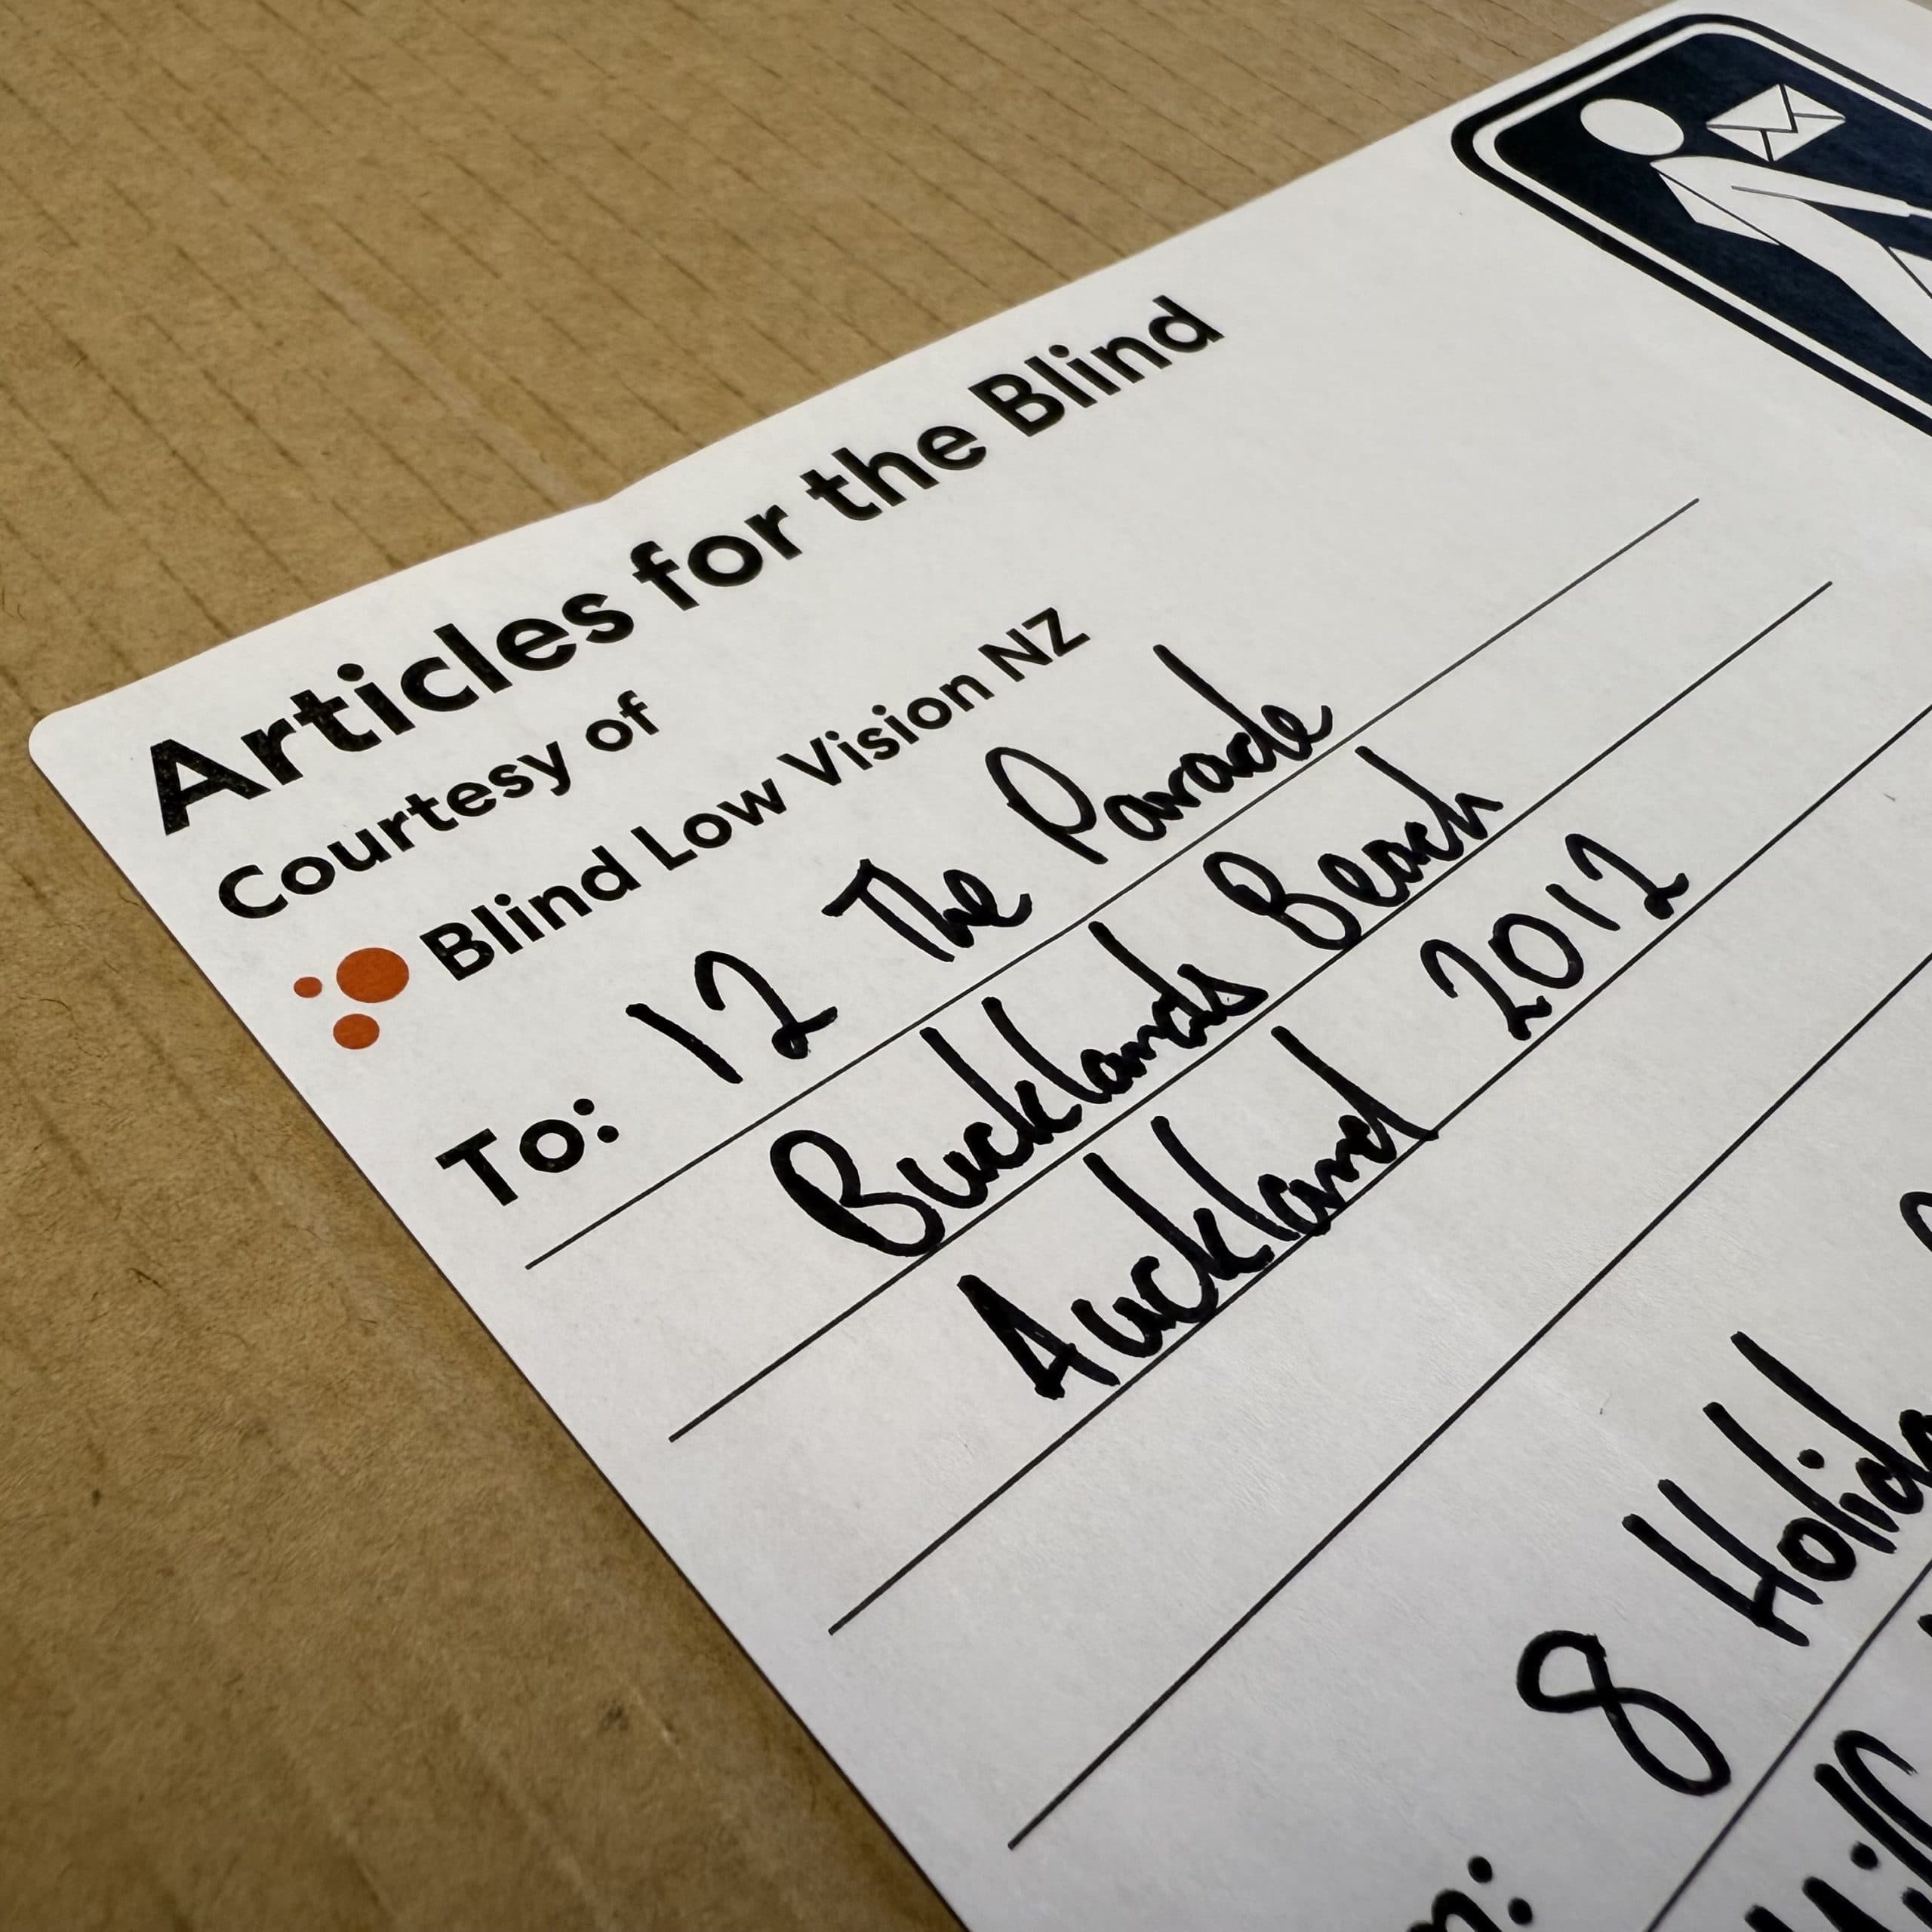 Articles for the Blind
Courtesy of
Blind Low Vision NZ
To: 12 The Parade
Bucklands Beach
Auckland 2012
8